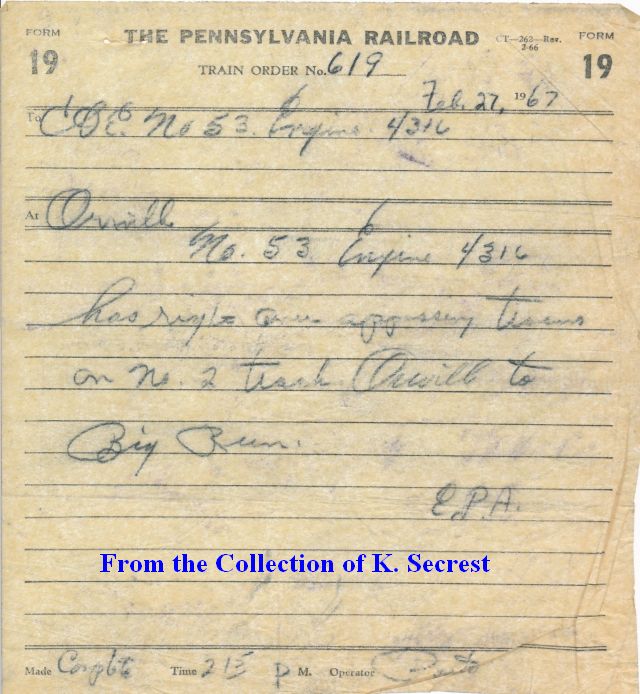 FORM 19
THE PENNSYLVANIA RAILROAD
CT—262—Rev. 2-66
FORM 19
TRAIN ORDER No. 619
Feb. 27, 1967
To C&E No 53 Engine 4316
At Orrvill
No. 53 Engine 4316
has right over opposing trains
on No. 2 track Orrvill to
Big Run.
E.P.A.
From the Collection of K. Secrest
Made Complt Time 215 p M. Operator